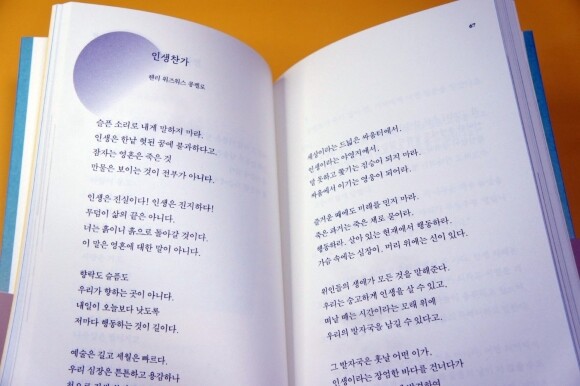 인생찬가
헨리 워즈워스 롱펠로
슬픈 소리로 내게 말하지 마라.
인생은 한낱 헛된 꿈에 불과하다고.
잠자는 영혼은 죽은 것
만물은 보이는 것이 전부가 아니다.
인생은 진실이다! 인생은 진지하다!
무덤이 삶의 끝은 아니다.
너는 흙이니 흙으로 돌아갈 것이다.
이 말은 영혼에 대한 말이 아니다.
향락도 슬픔도
우리가 향하는 곳이 아니다.
내일이 오늘보다 낫도록
저마다 행동하는 것이 길이다.
예술은 길고 세월은 빠르다.
우리 심장은 튼튼하고 용감하나
67
세상이라는 드넓은 싸움터에서,
인생이라는 야영지에서,
말 못하고 쫓기는 짐승이 되지 마라.
싸움에서 이기는 영웅이 되어라.
즐거울 때에도 미래를 믿지 마라.
죽은 과거는 죽은 채로 묻어라.
행동하라, 살아 있는 현재에서 행동하라.
가슴 속에는 심장이, 머리 위에는 신이 있다.
위인들의 생애가 모든 것을 말해준다.
우리는 숭고하게 인생을 살 수 있고,
떠날 때는 시간이라는 모래 위에
우리의 발자국을 남길 수 있다고.
그 발자국은 훗날 어떤 이가,
인생이라는 장엄한 바다를 건너다가